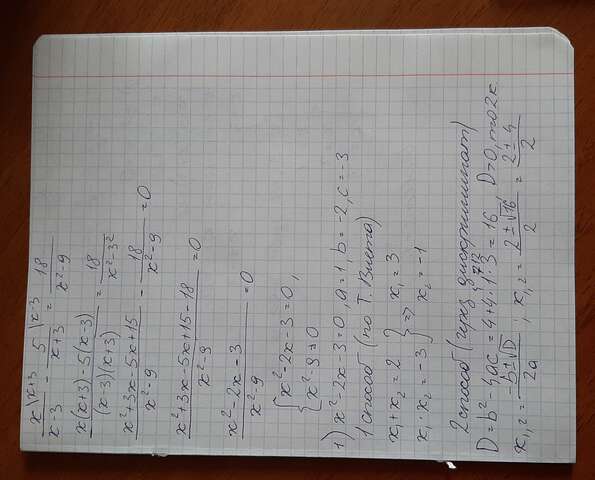 x\x+3/x-3 - 5\x-3/x+3 = 18/x²-9
x(x+3)-5(x-3)/(x-3)(x+3) = 18/x²-3²
x²+3x-5x+15/x²-9 - 18/x²-9 =0
x²+3x-5x+15-18/x²-9 =0
x²-2x-3/x²-9 =0
{x²-2x-3=0,
x²-9≠0
1) x²-2x-3=0, a=1, b=-2, c=-3
1 способ (по Т. Виета)
x₁+x₂=2 } => x₁=3
x₁·x₂=-3 } x₂=-1
2 способ (через дискриминант)
D=b²-4ac=4+4·1·3=16 D>0, то 2к.
x₁,₂ = -b±√D/2a ; x₁,₂ = 2±√16/2 = 2±4/2